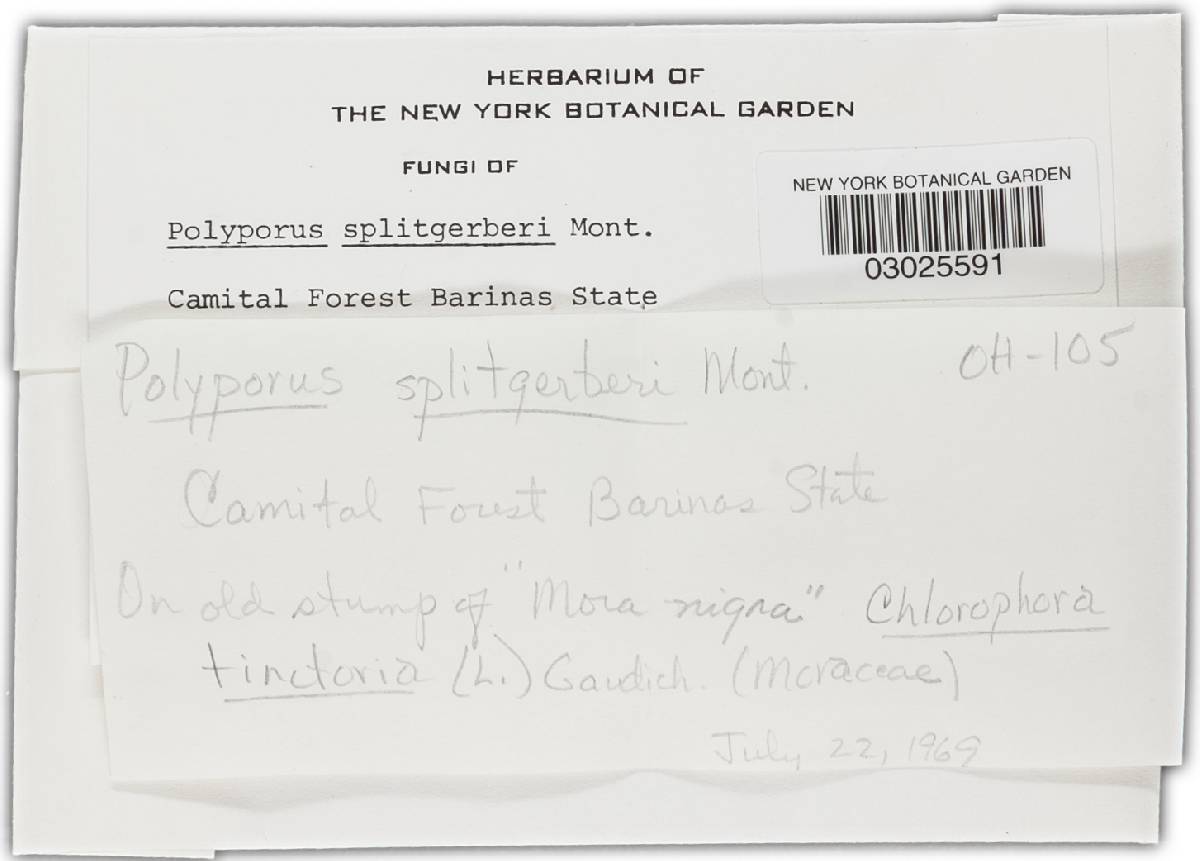 HERBARIUM OF
THE NEW YORK BOTANICAL GARDEN
FUNGI OF
NEW YORK BOTANICAL GARDEN
03025591
Polyporus splitgerberi Mont.
Camital Forest Barinas State
Polyporus splitgerberi Mont. OH-105
Camital Forest Barinas State
On old stump of "Mora nigra" Chlorophora
tinctoria (L.) Gaudich. (Moraceae)
July 22, 1969